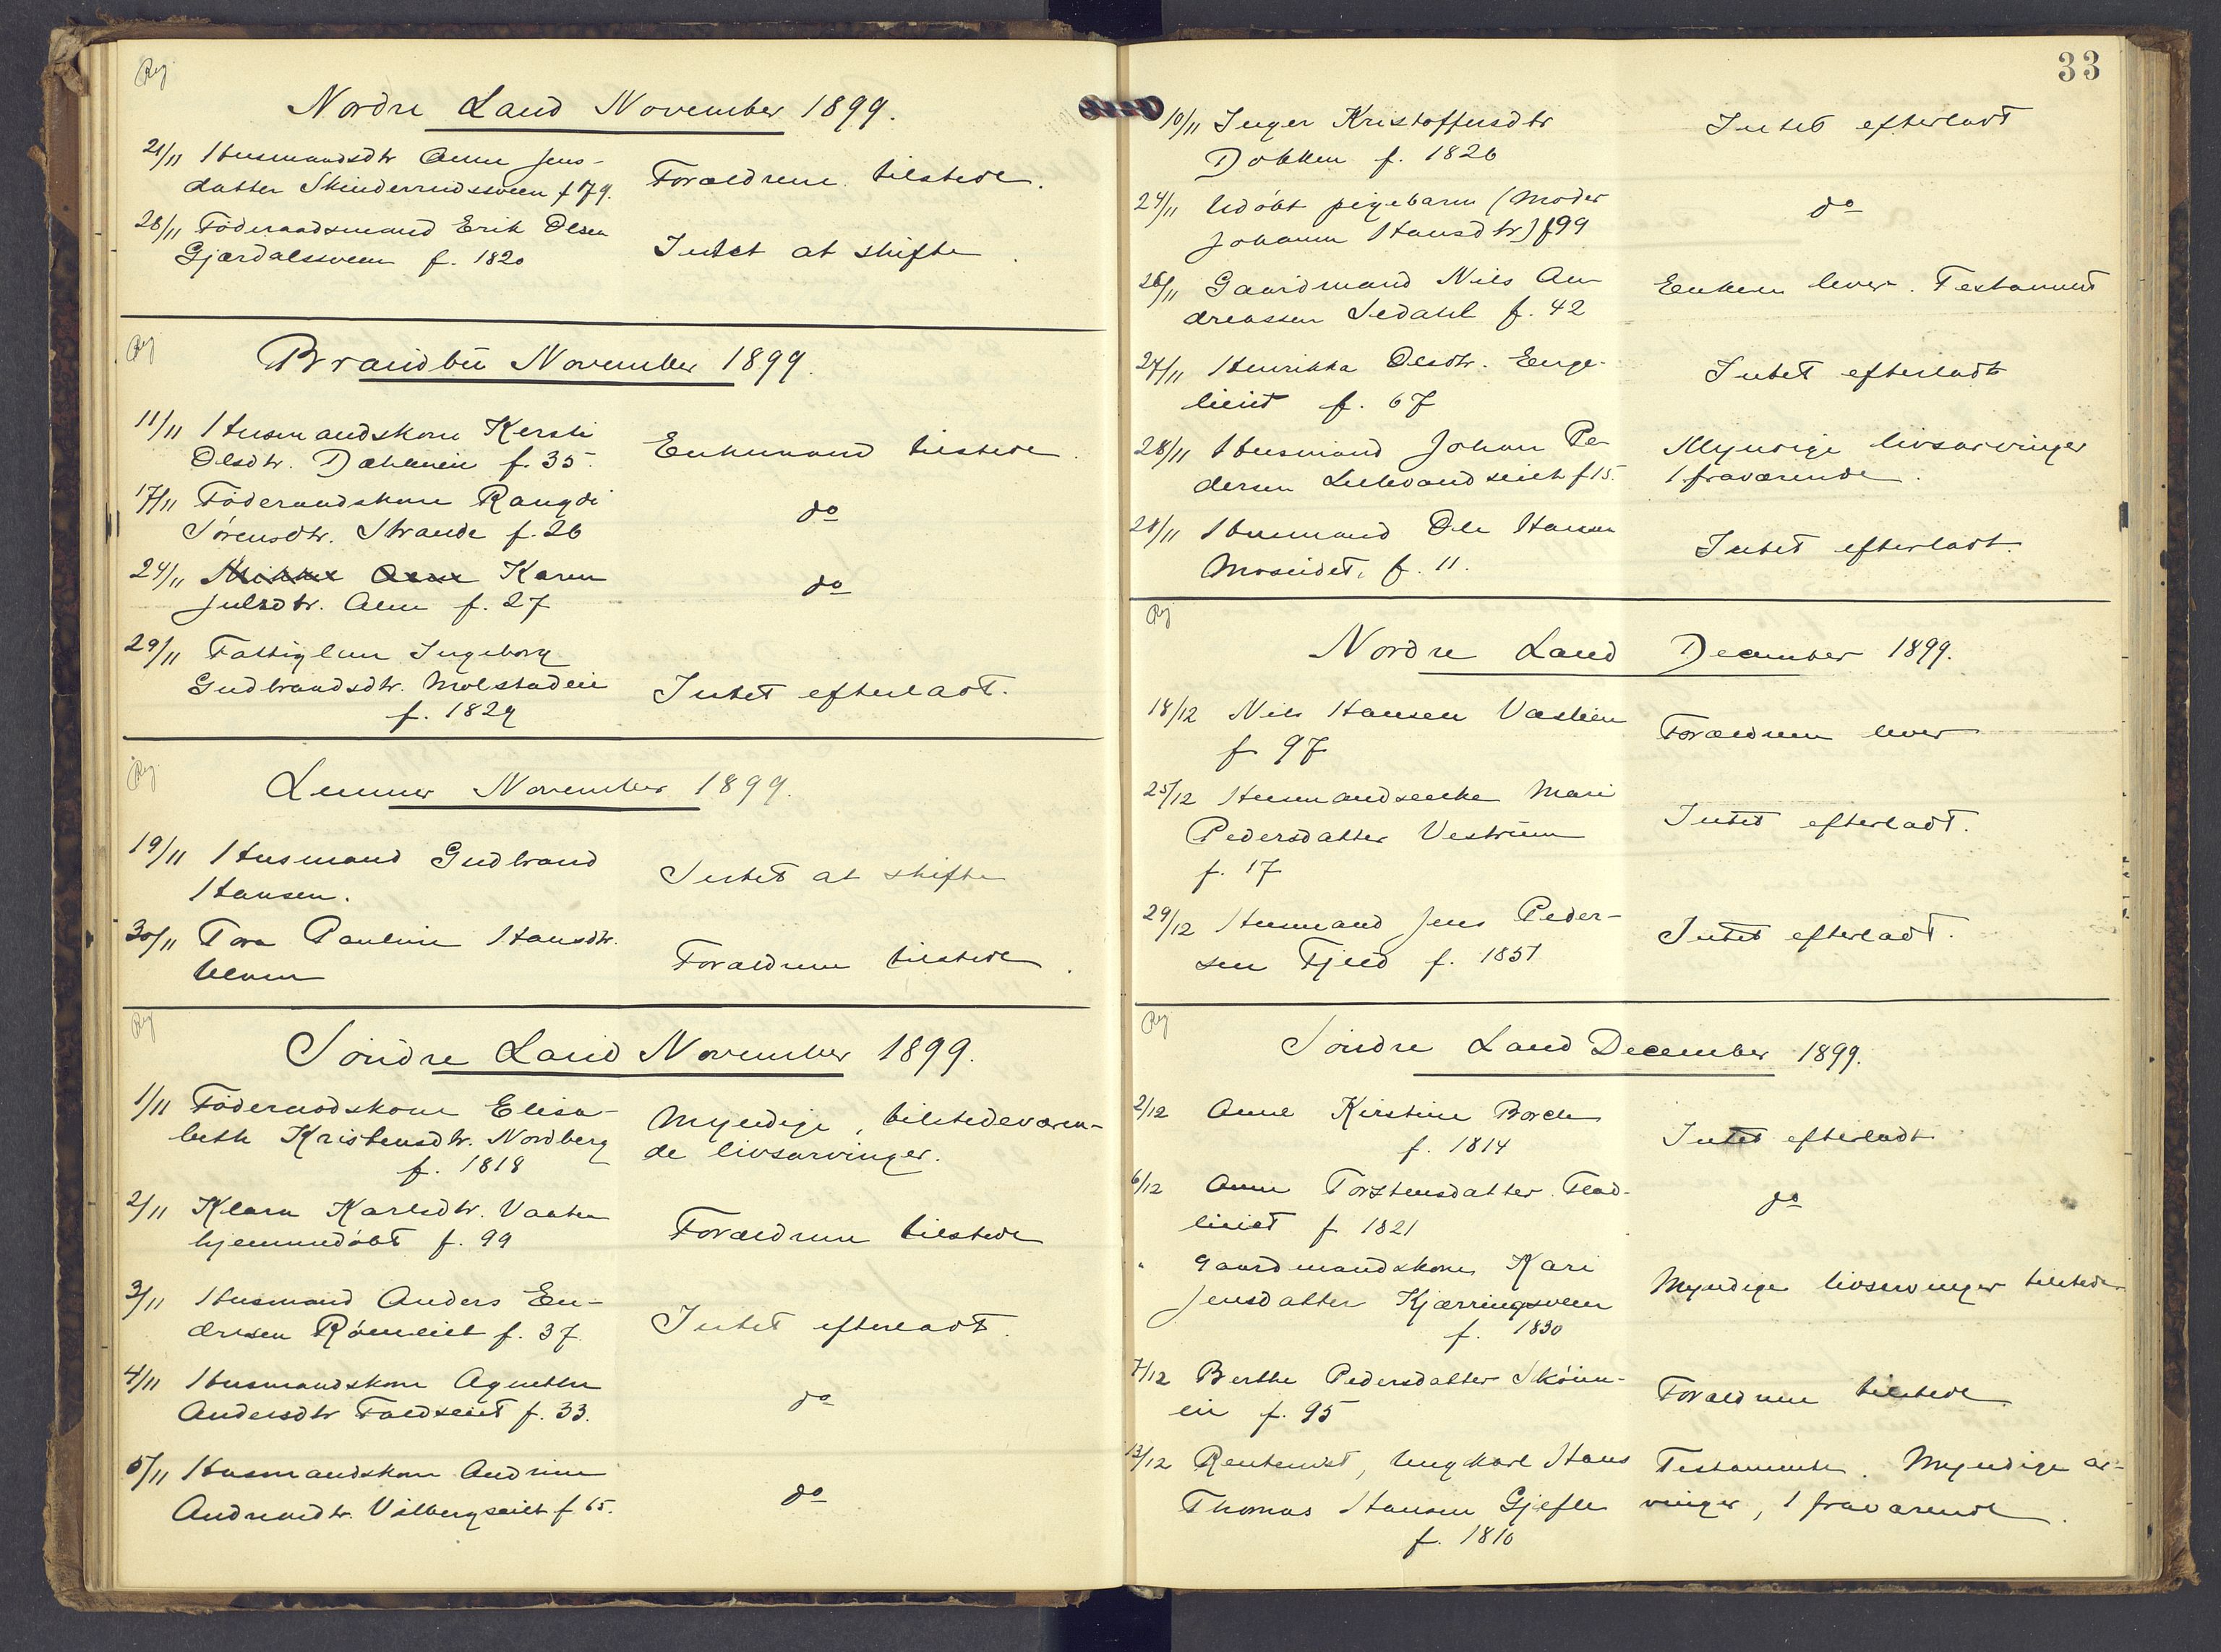 Reg
Nordre Land November 1899.
21/11 Husmandsdtr Anne Jens-
datter Skinderrudsveen f 79. Forældrene tilstede.
28/11 Föderaadsmand Erik Olsen
Gjærdalssveen f. 1820 Intet at skifte.
Reg
Brandbu November 1899.
11/11 Husmandskone Kersti
Olsdtr. Dæhleneie f. 35. Enkemand tilstede.
17/11 Föderaadskone Rangdi
Sørensdtr. Strande f. 26 do
24/11 Karen
Julsdtr. Alm f. 27 do
29/11 Fattiglem Ingeborg
Gudbrandsdtr. Molstadeie Intet efterladt.
f. 1829
Reg
Lunner November 1899.
19/11 Husmand Gudbrand
Hansen. Intet at skifte
30/11 Tora Pauline Hansdtr.
Ulven Forældrene tilstede.
Reg
Söndre Land November 1899.
1/11 Föderaadskone Elisa-
beth Kristensdtr. Nordberg
f. 1818
Myndige, tilstedeværen-
de livsarvinger.
2/11 Klara Karlsdtr. Vaaten
hjemmedöbt f. 99 Forældrene tilstede
3/11 Husmand Anders En-
dresen Röneeiet f. 37 Intet efterladt.
4/11 Husmandskone Agnethe
Andersdtr Faldseiet f. 33. do
5/11 Husmandskone Andrine
Andreasdtr. Vilbergseiet f. 65. do
33
10/11 Inger Kristoffersdtr
Dokken f. 1826 Intet efterladt
24/11 Udöbt pigebarn (Moder
Johanne Hansdtr) f 99 do
26/11 Gaardmand Nils An-
dreassen Sedahl f. 42 Enken lever. Testament
27/11 Henrikka Olsdtr. Enge-
lieiet f. 67 Intet efterladt
28/11 Husmand Johan Pe-
dersen Lillevandseiet f 15.
Myndige livsarvinger
1 fraværende.
28/11 Husmand Ole Hansen
Moseidet, f. 11. Intet efterladt.
Reg
Nordre Land December 1899.
18/12 Nils Hansen Væslien
f 97 Forældrene lever
25/12 Husmandsenke Mari
Pedersdatter Vestrum
f. 17 Intet efterladt.
29/12 Husmand Jens Peder-
sen Fjeld f. 1851 Intet efterladt.
Reg
Söndre Land December 1899.
2/12 Anne Kirstine Borch
f. 1814 Intet efterladt
6/12 Anne Torstensdatter Flad-
lieiet f 1821 do
" Gaardmandskone Kari
Jensdatter Kjærringsveen
f. 1830
Myndige livsarvinger tilstede
7/12 Berthe Pedersdatter Sköien-
eie f. 95 Forældrene tilstede.
13/12 Rentenist, Ungkarl Hans
Thomas Hansen Gjefle
f. 1810
Testamente. Myndige ar-
vinger, 1 fraværende.